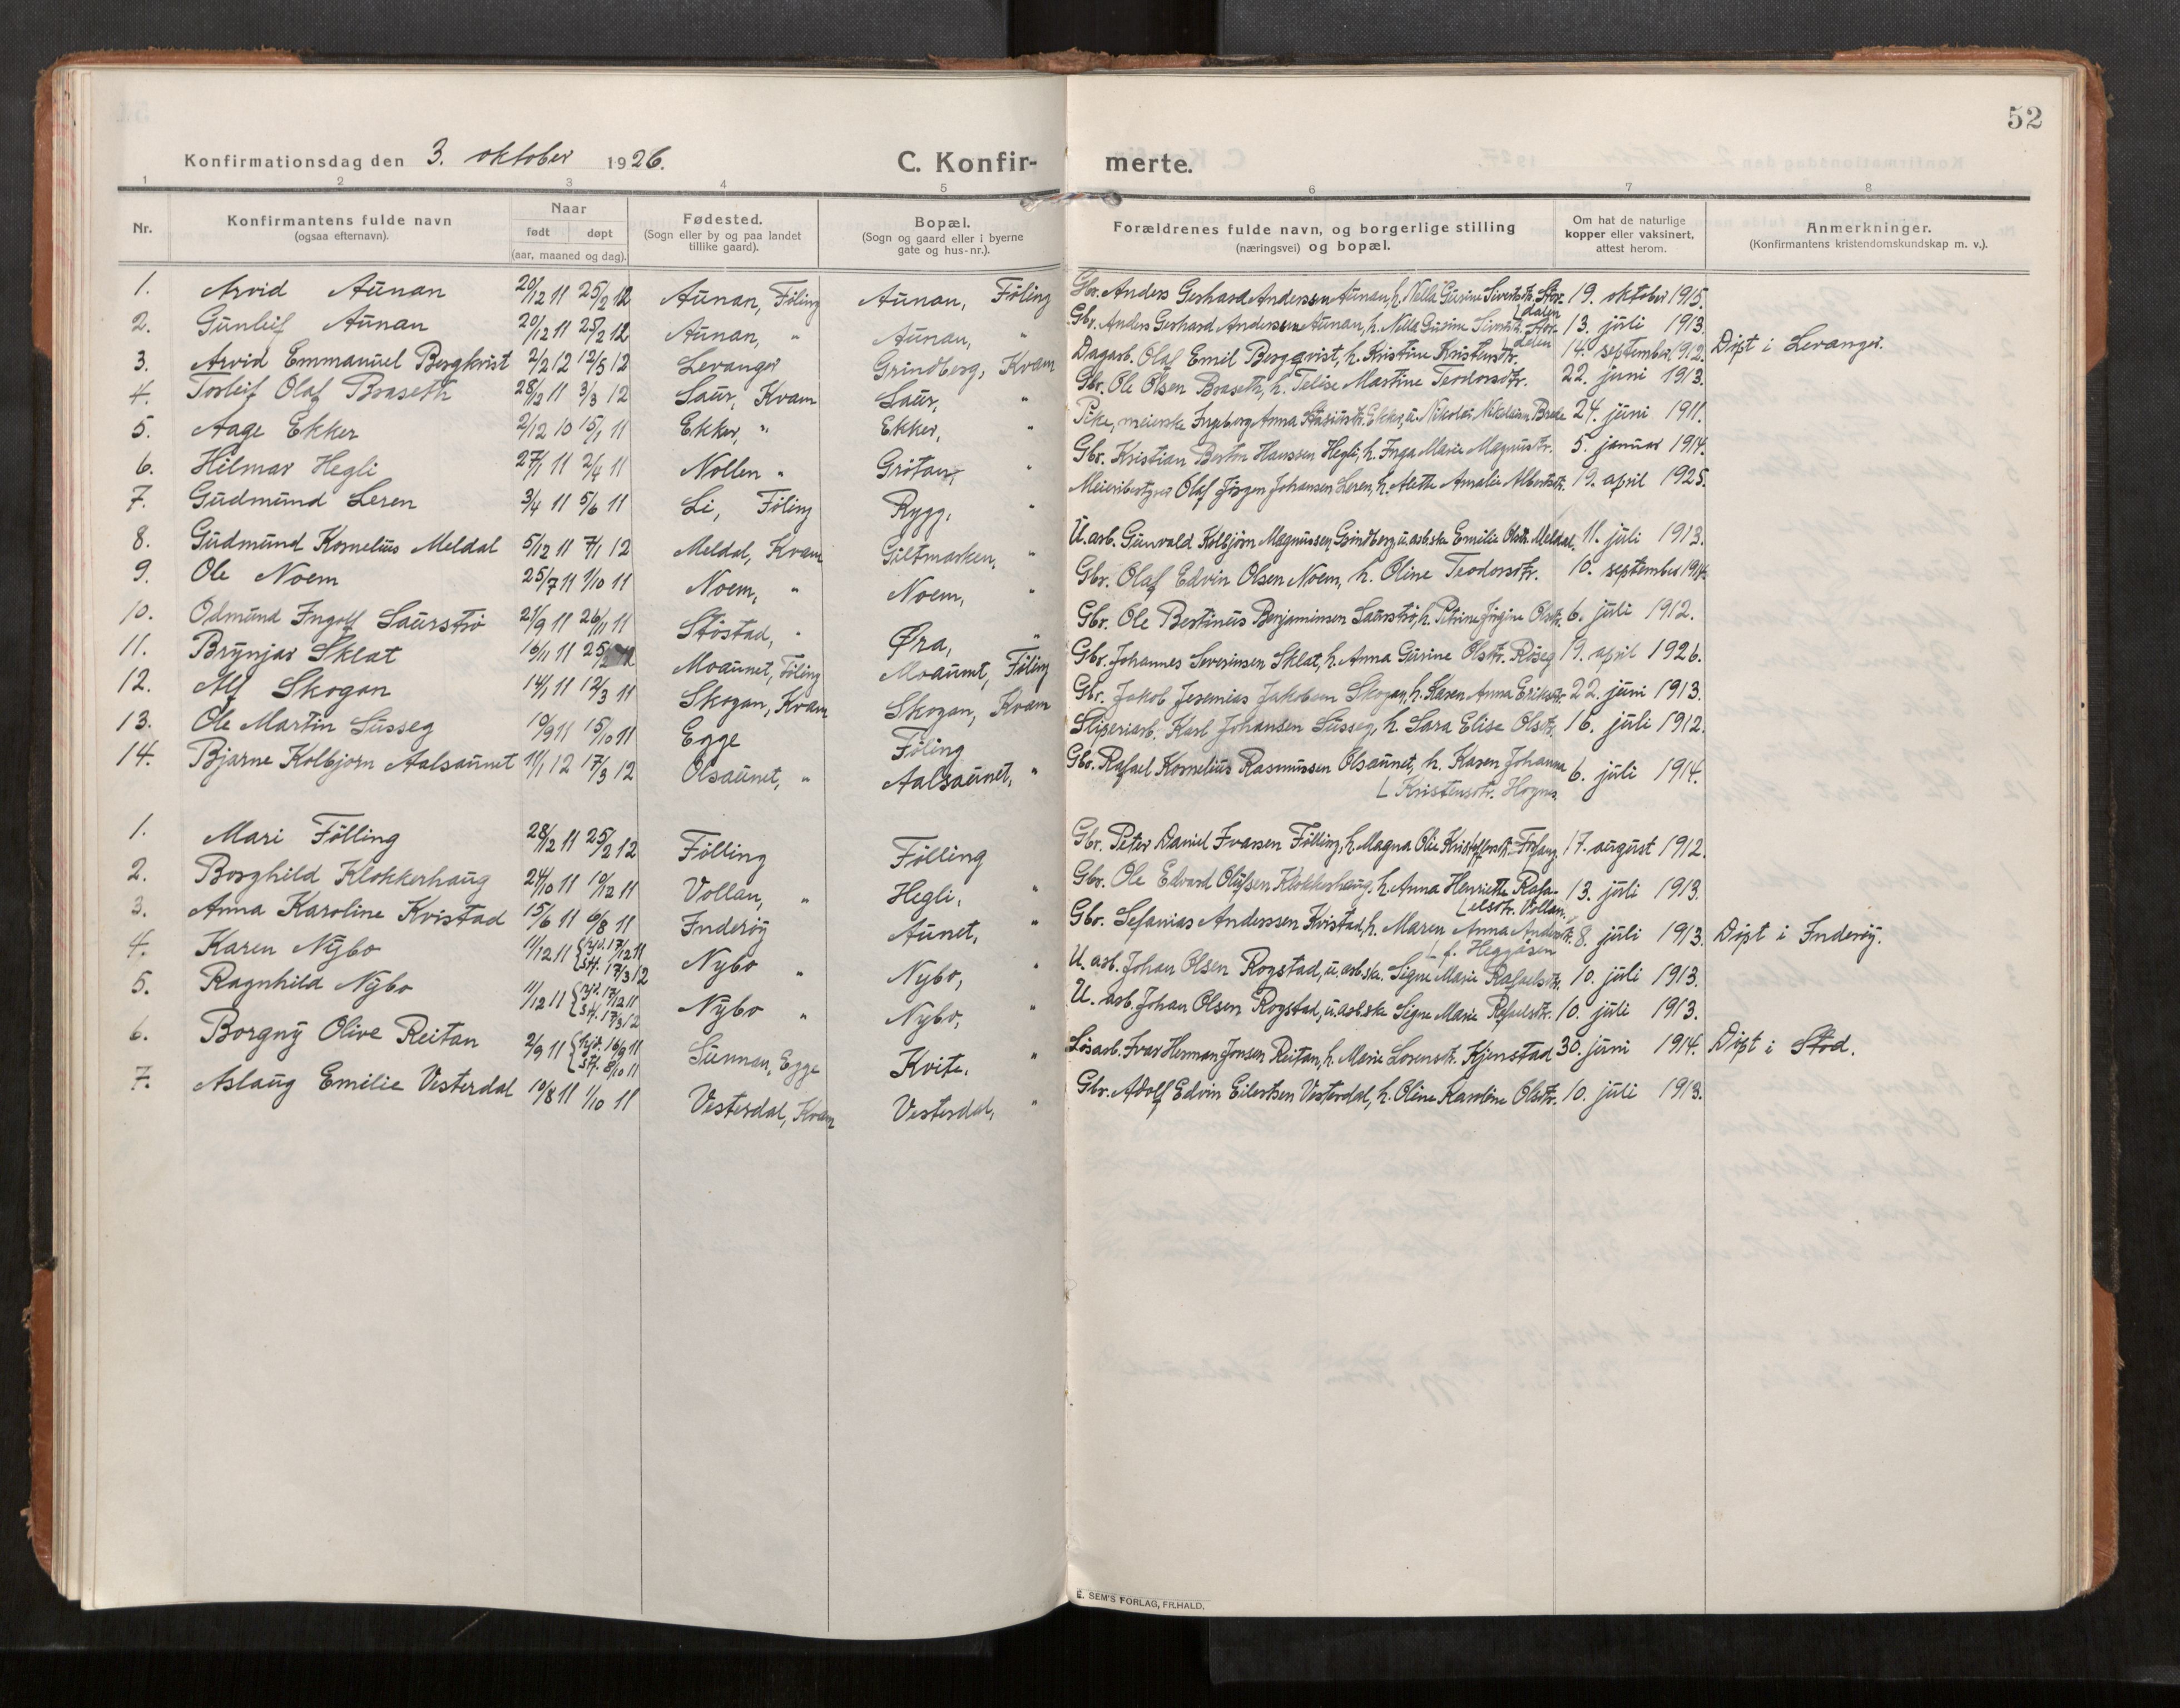 52
Konfirmationsdag den 3. oktober 1926. C. Konfir- merte.
1 2 3 4 5 6 7 8
Nr. Konfirmantens fulde navn (ogsaa efternavn). Naar født døpt (aar, maaned og dag). Fødested. (Sogn eller by og paa landet tillike gaard). Bopæl. (Sogn og gaard eller i byerne gate og hus-nr.). Forældrenes fulde navn, og borgerlige stilling (næringsvei) og bopæl. Om hat de naturlige kopper eller vaksinert, attest herom. Anmerkninger. (Konfirmantens kristendomskundskap m. v.).
1. Arvid Aunan 20/12 11 25/2 12 Aunan, Føling Aunan, Føling Gbr. Anders Gerhard Anderssen Aunan, h. Nella Gusine Sivertsdtr. Stor- 19. oktober 1915.
[dalen
2. Gunleif Aunan 20/12 11 25/2 12 Aunan, " Aunan, " Gbr. Anders Gerhard Anderssen Aunan, h. Nella Gusine Sivertsdtr. Stor- 13. juli 1913.
[dalen
3. Arvid Emmanuel Bergkvist 2/2 12 12/5 12 Levanger Grindberg, Kvam Dagarb. Olaf Emil Bergqvist, h. Kristine Kristensdtr. 14. september 1912. Døpt i Levanger.
4. Torleif Olaf Braseth 28/2 11 3/3 12 Saur, Kvam Saur, " Gbr. Ole Olsen Braseth, h. Telise Martine Teodorsdtr. 22. juni 1913.
5. Aage Ekker 2/12 10 15/1 11 Ekker, " Ekker, " Pike, meierske Ingeborg Anna Ekker, u. Nikolai Nikolaisen 24. juni 1911.
6. Hilmar Hegli 27/1 11 2/4 11 Nollen " Grøtan, " Gbr. Kristian Berton Hanssen Hegli, h. Inga Marie Magnusdtr. 5. januar 1914.
7. Gudmund Leren 3/4 11 5/6 11 Li, Føling Rygg, " Meieribestyrer Olaf Jørgen Johansen Leren, h. Alette Amalie Albertsdtr. 19. april 1925.
8. Gudmund Kornelius Meldal 5/12 11 7/1 12 Meldal, Kvam Giltmarken, " U. arb. Gunvald Kolbjørn Magnussen Grindberg, u. arb.ske Emilie Olsdtr. Meldal. 11. juli 1913.
9. Ole Noem 25/7 11 1/10 11 Noem, " Noem, " Gbr. Olaf Edvin Olsen Noem, h. Oline Teodorsdtr. 10. september 1914.
10. Odmund Ingolf Saurstrø 21/9 11 26/11 11 Støstad, " Øra, " Gbr. Ole Bertinus Benjaminsen Saurstrø, h. Petrine Jørgine Olsdtr. 6. juli 1912.
11. Brynjar Sklat 16/11 11 25/ Moaunet, Føling Moaunet, Føling Gbr. Johannes Severinsen Sklat, h. Anna Gurine Olsdtr. Røseg 19. april 1926.
12. Alf Skogan 14/1 11 12/3 11 Skogan, Kvam Skogan, Kvam Gbr. Jakob Jeremias Jakobsen Skogan, h. Karen Anna Eriksdtr. 22. juni 1913.
13. Ole Martin Susseg 10/9 11 15/10 11 Egge Føling Sliperiarb. Karl Johansen Susseg, h. Sara Elise Olsdtr. 16. juli 1912.
14. Bjarne Kolbjørn Aalsaunet 11/1 12 17/3 12 Olsaunet, " Aalsaunet, " Gbr. Rafael Kornelius Rasmussen Olsaunet, h. Karen Johanna 6. juli 1914.
[Kristensdtr. Hognes.
1. Mari Følling 28/12 11 25/2 12 Følling Følling Gbr. Peter Daniel Ivarsen Følling, h. Magna Olie Kristoffersdtr. 17. august 1912.
2. Borghild Klokkerhaug 24/10 11 10/12 11 Vollan, " Hegli, " Gbr. Ole Edvard Olufsen Klokkerhaug, h. Anna Henriette Rafa- 13. juli 1913.
[elsdtr. Vollan.
3. Anna Karoline Kvistad 15/6 11 6/8 11 Inderøy Aunet, " Gbr. Sefanias Anderssen Kvistad, h. Maren Anna Andersdtr. 8. juli 1913. Døpt i Inderøy.
[f. Heggåsen
4. Karen Nybo 11/12 11 {hjd. 17/12 11 stf. 17/3 12 Nybo " Nybo, " U. arb. Johan Olsen Rogstad, u. arb.ske. Signe Marie Rafaelsdtr. 10. juli 1913.
5. Ragnhild Nybo 11/12 11 {hjd. 17/12 11 stf. 17/3 12 Nybo " Nybo, " U. arb. Johan Olsen Rogstad, u. arb.ske Signe Marie Rafaelsdtr. 10. juli 1913.
6. Borgny Olive Reitan 2/9 11 {hjd. 16/9 11 stf. 8/10 11 Sunnan, Egge Kvite, " Løsarb. Ivar Herman Jonsen Reitan, h. Marie Lorensdtr. Kjenstad 30. juni 1914. Døpt i Stod.
7. Aslaug Emilie Vesterdal 10/8 11 1/10 11 Vesterdal, Kvam Vesterdal, " Gbr. Adolf Edvin Eilertsen Vesterdal, h. Oline Karoline Olsdtr. 10. juli 1913.
E. SEM'S FORLAG, FR.HALD.